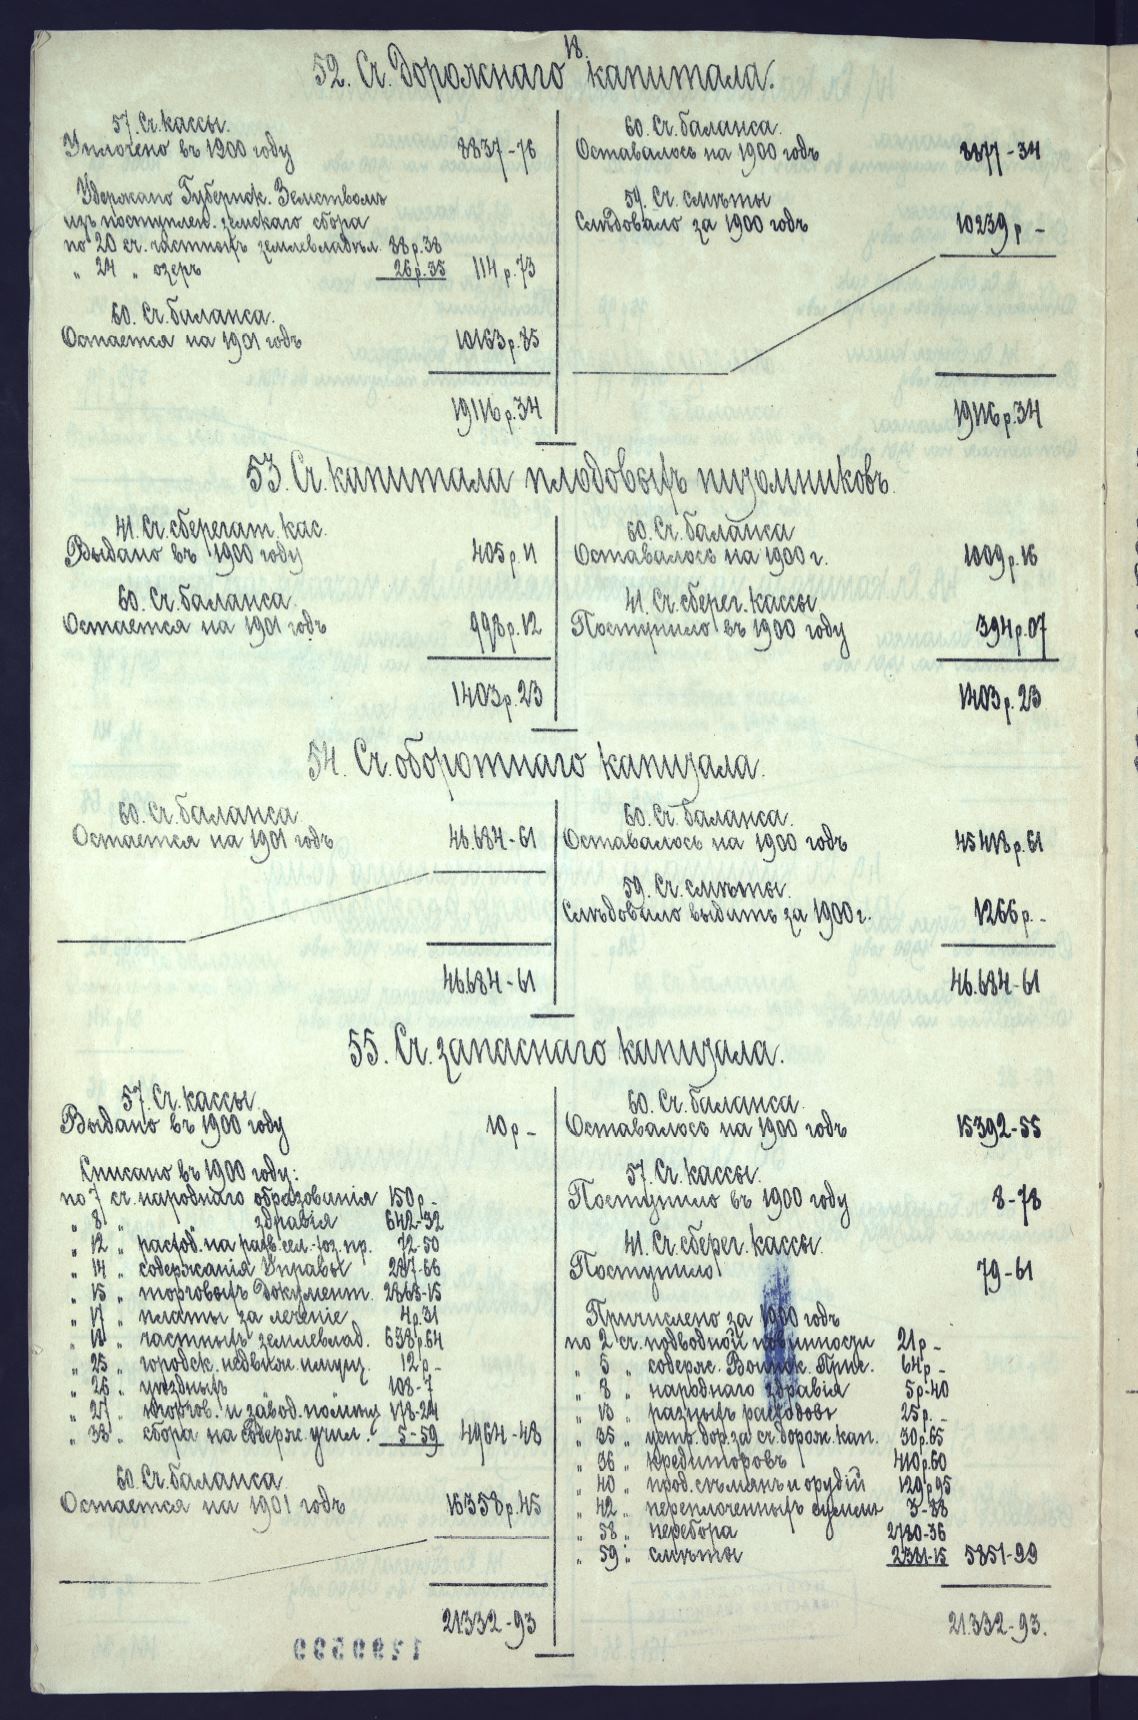 18.
52. Сч. Дорожнаго капитала.
57. Сч. кассы.
Уплочено въ 1900 году 8837-76
Удержано Губернск. Земствомъ
изъ поступлен. земскаго сбора
по 20 сч. частныхъ землевладѣл. 88 р. 38
„ 24 „ озеръ 26 р. 35 114 р. 73
60. Сч. баланса.
Остается на 1901 годъ 10163 р. 85
19116 р. 34
60. Сч. баланса.
Оставалось на 1900 годъ 8877-34
59. Сч. смѣты
Слѣдовало за 1900 годъ 10239 р -
19116 р. 34
53. Сч. капитала плодовыхъ питомниковъ.
41. Сч. сберегат. кас.
Выдано въ 1900 году 405 р. 11
60. Сч. баланса.
Остается на 1901 годъ 998 р. 12
1403 р. 23
60. Сч. баланса
Оставалось на 1900 г. 1009 р. 16
41. Сч. сберег. кассы
Поступило въ 1900 году 394 р. 07
1403 р. 23
54. Сч. оборотнаго капитала.
60. Сч. баланса
Остается на 1901 годъ 46.684-61
46684-61
60. Сч. баланса.
Оставалось на 1900 годъ 45418 р. 61
59. Сч. смѣты.
Слѣдовало выдать за 1900 г. 1266 р. -
46.684-61
55. Сч. запаснаго капитала.
57. Сч. кассы.
Выдано въ 1900 году 10 р -
Списано въ 1900 году:
по 7 сч. народнаго образованія 150 р -
„ 8 „ „ здравія 642-32
„ 12 „ расход. на разв. сел. хоз. пр. 72-50
„ 14 „ содержанія Управы 287-66
„ 15 „ торговыхъ документ. 2363-15
„ 17 „ платы за леченіе 4 р. 31
„ 18 „ частныхъ землевлад. 638 р. 64
„ 25 „ городск. недвиж. имущ. 12 р -
„ 26 „ уѣздныхъ 108-7
„ 27 „ торгов. и завод. помѣщ 178-24
„ 33 „ сбора на содерж. учил. 5-59 4964-48
60. Сч. баланса
Остается на 1901 годъ 16358 р. 45
21332-93
60. Сч. баланса.
Оставалось на 1900 годъ 15392-55
57. Сч. кассы.
Поступило въ 1900 году 8-78
41. Сч. сберег. кассы.
Поступило 79-61
Причислено за 1900 годъ
по 2 сч. подводной повинности 21 р -
„ 5 „ содерж. Воинск. Прис. 64 р -
„ 8 „ народнаго здравія 5 р-40
„ 13 „ разныхъ расходовъ 25 р. -
„ 35 „ устр. дор. за сч. дорож. кап. 30 р. 65
„ 36 „ кредиторовъ 410 р. 60
„ 40 „ прод. сѣмянъ и орудій 129 р. 95
„ 42 „ переплоченныхъ суммъ 3-88
„ 58 „ перебора 2780-36
„ 59 „ смѣты 2381-15 5851-99
21.332-93.